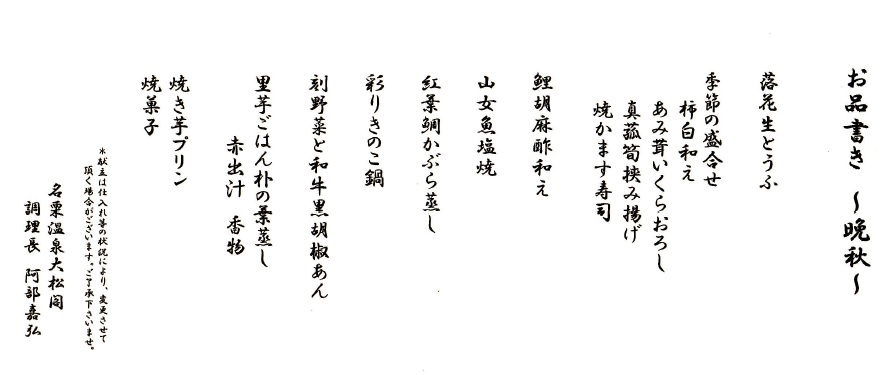 お品書き ～晩秋～
落花生とうふ
季節の盛合せ
柿白和え
あみ茸いくらおろし
真菰筍挟み揚げ
焼かます寿司
鯉胡麻酢和え
山女魚塩焼
紅葉鯛かぶら蒸し
彩りきのこ鍋
刻野菜と和牛黒胡椒あん
里芋ごはん朴の葉蒸し
赤出汁 香物
焼き芋プリン
焼菓子
＊献立は仕入れ等の状況により、変更させて
頂く場合がございます。ご了承下さいませ。
名栗温泉大松閣
調理長 阿部嘉弘